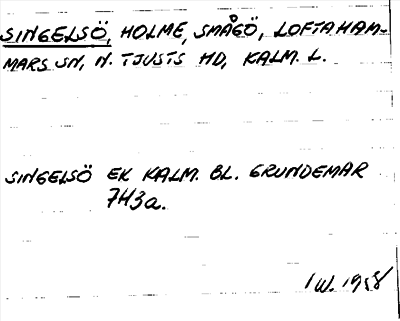 SINGELSÖ, HOLME, SMÅGÖ, LOFTAHAM-
MARS SN, N. TJUSTS HD, KALM. L.
SINGELSÖ EK KALM. BL. GRUNDEMAR
7H3a.
IW. 1958